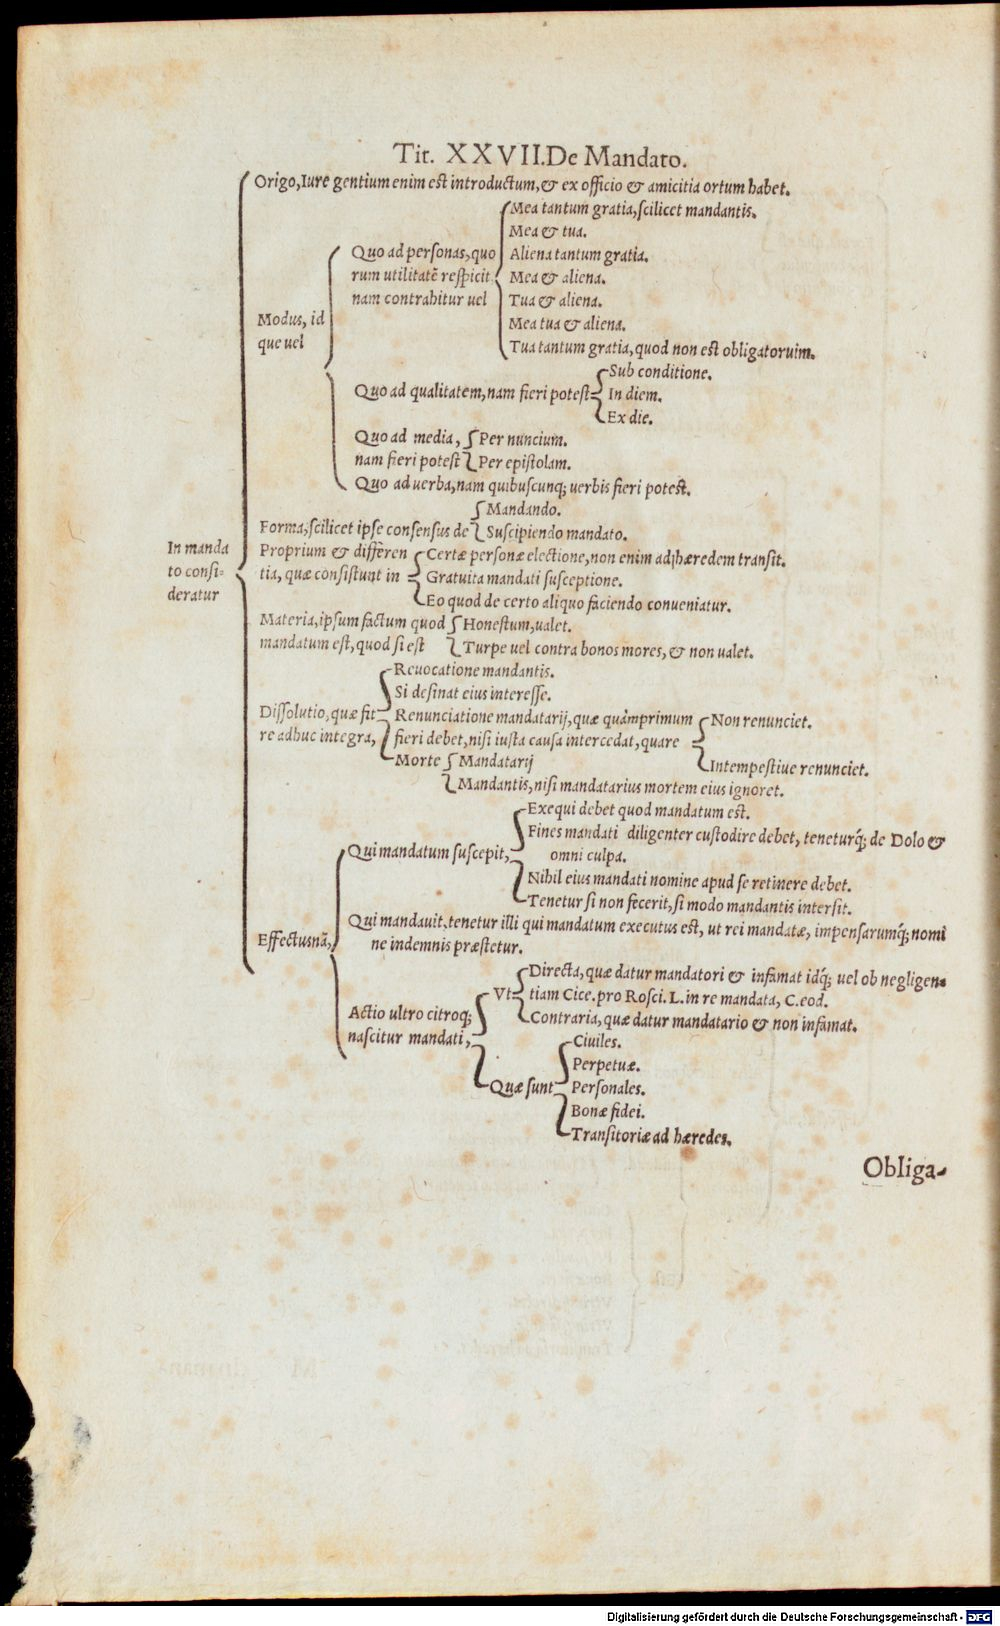 Tit. XXVII. De Mandato.
In manda
to consi-
deratur
Origo, Iure gentium enim est introductum, & ex officio & amicitia ortum habet.
Modus, id
que uel
Quo ad personas, quo
rum utilitatē respicit
nam contrahitur uel
Mea tantum gratia, scilicet mandantis.
Mea & tua.
Aliena tantum gratia.
Mea & aliena.
Tua & aliena.
Mea tua & aliena.
Tua tantum gratia, quod non est obligatoruim.
Quo ad qualitatem, nam fieri potest
Sub conditione.
In diem.
Ex die.
Quo ad media,
nam fieri potest
Per nuncium.
Per epistolam.
Quo ad uerba, nam quibuscunq; uerbis fieri potest.
Forma, scilicet ipse consensus de
Mandando.
Suscipiendo mandato.
Proprium & differen
tia, quæ consistunt in
Certæ personæ electione, non enim ad hæredem transit.
Gratuita mandati susceptione.
Eo quod de certo aliquo faciendo conueniatur.
Materia, ipsum factum quod
mandatum est, quod si est
Honestum, ualet.
Turpe uel contra bonos mores, & non ualet.
Dissolutio, quæ fit
re adhuc integra,
Reuocatione mandantis.
Si desinat eius interesse.
Renunciatione mandatarij, quæ quàmprimum
fieri debet, nisi iusta causa intercedat, quare
Non renunciet.
Intempestiue renunciet.
Morte
Mandatarij
Mandantis, nisi mandatarius mortem eius ignoret.
Effectus nā,
Qui mandatum suscepit,
Exequi debet quod mandatum est.
Fines mandati diligenter custodire debet, teneturq́; de Dolo &
omni culpa.
Nihil eius mandati nomine apud se retinere debet.
Tenetur si non fecerit, si modo mandantis intersit.
Qui mandauit, tenetur illi qui mandatum executus est, ut rei mandatæ, impensarumq́; nomi
ne indemnis præstetur.
Actio ultro citroq;
nascitur mandati,
Vt
Directa, quæ datur mandatori & infamat idq́; uel ob negligen-
tiam Cice. pro Rosci. L. in re mandata, C. eod.
Contraria, quæ datur mandatario & non infamat.
Quæ sunt
Ciuiles.
Perpetuæ.
Personales.
Bonæ fidei.
Transitoriæ ad hæredes.
Obliga-
Digitalisierung gefördert durch die Deutsche Forschungsgemeinschaft - DFG